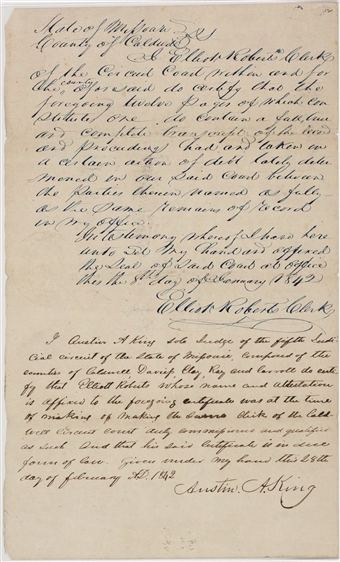 State of Missouri
County of Caldwell
I Elliott Roberts Clerk
of the Circuit Court within and for
the county aforesaid do certify that the
foregoing twelve Pages of which con
stitutes one do contain a full true
and complete transcript of the
and proceedings had and taken in
a certain action of debt lately deter
mened in our said Court between
the Parties therein named as fully
as the same remains of record
in my office
In testimony whereof I have here
unto set my hand and affixed
the seal of said Court at office
this the 8th day of 1842
Elliott Roberts Clerk
I Austin A King sole Judge of the fifth Judi
cial circuit of the State of Missouri, composed of the
counties of Caldwell Daviess, Clay, Ray and Carroll do certi
fy that Elliott Roberts whose name and attestation
is affixed to the foregoing certificate was at the time
of making of making the same Clerk of the Cald
well Circuit court duly commissioned and qualified
as such And that his said certificate is in due
form of law. Given under my hand this 28th
day of february AD. 1842
Austin A. King